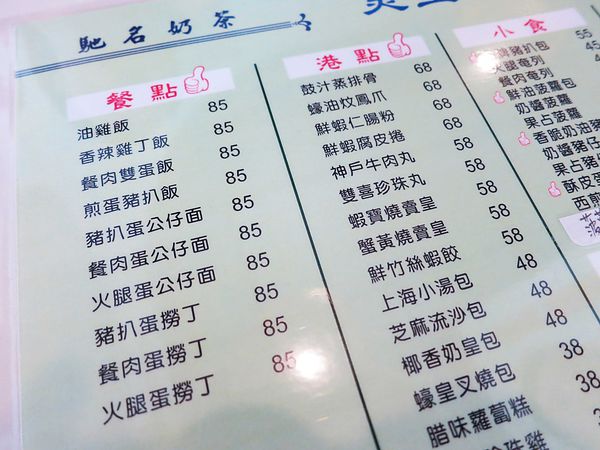 馳名奶茶
餐點
油雞飯 85
香辣雞丁飯 85
餐肉雙蛋飯 85
煎蛋豬扒飯 85
豬扒蛋公仔面 85
餐肉蛋公仔面 85
火腿蛋公仔面 85
豬扒蛋撈丁 85
餐肉蛋撈丁 85
火腿蛋撈丁 85
港點
鼓汁蒸排骨 68
蠔油炆鳳爪 68
鮮蝦仁腸粉 68
鮮蝦腐皮捲 68
神戶牛肉丸 58
雙喜珍珠丸 58
蝦寶燒賣皇 58
蟹黃燒賣皇 58
鮮竹絲蝦餃 58
上海小湯包 48
芝麻流沙包 48
椰香奶皇包 38
蠔皇叉燒包 38
臘味蘿蔔糕
珍珠雞
小食
豬扒包 55
腿奄列 45
餐肉奄列
鮮油菠蘿包
奶醬菠蘿
果占菠蘿
香脆奶油豬
奶醬豬仔
果占豬
酥皮蛋
西煎